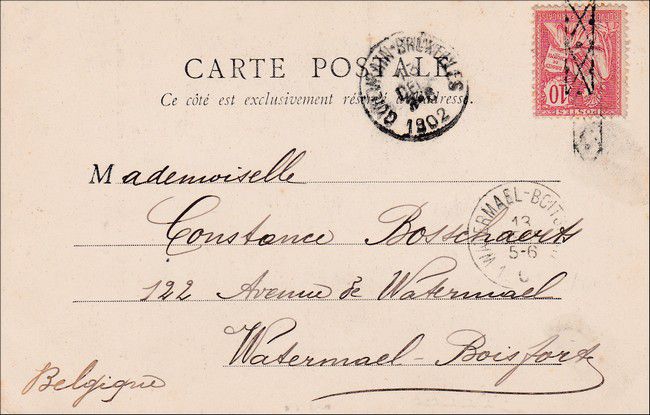 CARTE POSTALE
Ce côté est exclusivement réservé à l'adresse.
BRUXELLES
DEC
1902
10
POSTES
WATERMAEL-BOITS
13
5-6
Mademoiselle
Constance Bosschaerts
122 Avenue de Watermael
Watermael-Boisfort
Belgique